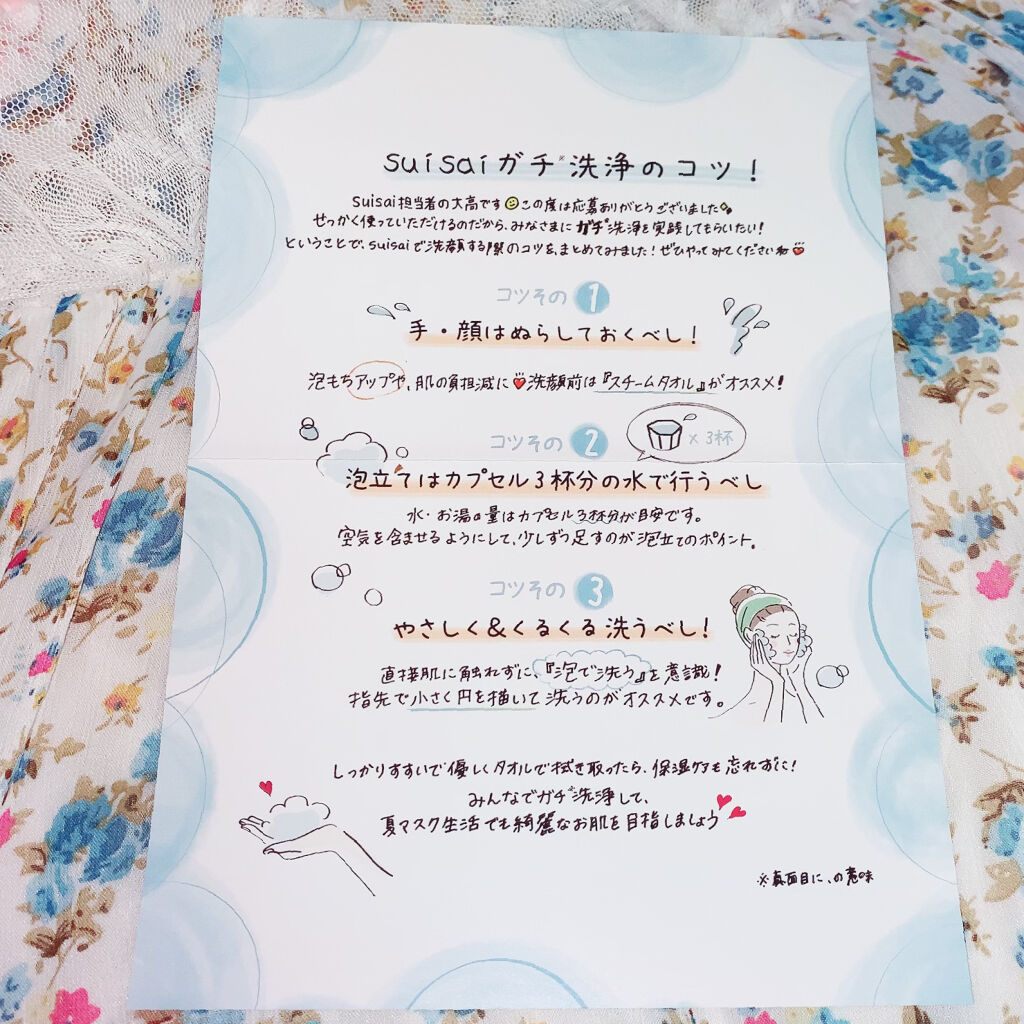 suisaiガチ※洗浄のコツ！
suisai担当者の大高です この度は応募ありがとうございました
せっかく使っていただけるのだから、みなさまにガチ洗浄を実践してもらいたい！
ということで、suisaiで洗顔する際のコツを、まとめてみました！ぜひやってみてくださいね
コツその1
手・顔はぬらしておくべし！
泡もちアップや、肌の負担減に 洗顔前は『スチームタオル』がオススメ！
コツその2
×3杯
泡立てはカプセル3杯分の水で行うべし
水・お湯の量はカプセル3杯分が目安です。
空気を含ませるようにして、少しずつ足すのが泡立てのポイント。
コツその3
やさしく&くるくる洗うべし！
直接肌に触れずに、『泡で洗う』を意識！
指先で小さく円を描いて洗うのがオススメです。
しっかりすすいで優しくタオルで拭き取ったら、保湿ケアも忘れずに！
みんなでガチ洗浄して、
夏マスク生活でも綺麗なお肌を目指しましょう
※真面目に、の意味